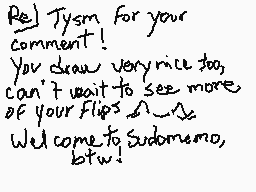 Re] Tysm for your
comment!
You draw very nice too,
can't wait to see more
of your flips ^_^
Welcome to Sudomemo,
btw!